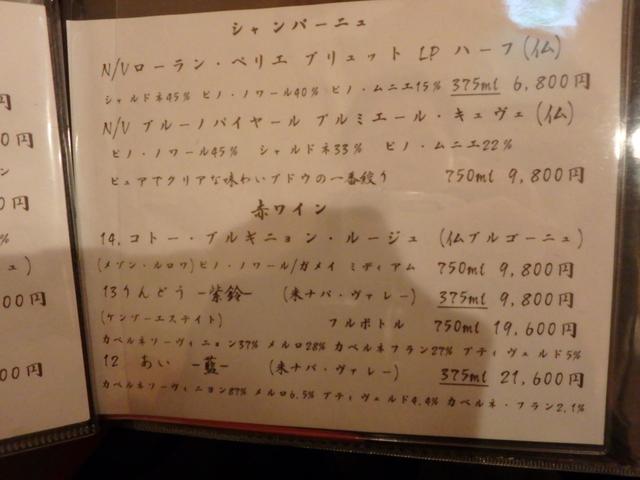 シャンパーニュ
N/Vローラン・ペリエ ブリュット LP ハーフ(仏)
シャルドネ45% ピノ・ノワール40% ピノ・ムニエ15% 375ml 6,800円
N/V ブルーノパイヤール プルミエール・キュヴェ(仏)
ピノ・ノワール45% シャルドネ33% ピノ・ムニエ22%
ピュアでクリアな味わいブドウの一番搾り 750ml 9,800円
赤ワイン
14.コトー・ブルギニョン・ルージュ (仏ブルゴーニュ)
(メゾン・ルロワ)ピノ・ノワール/ガメイ ミディアム 750ml 9,800円
13りんどう -紫鈴- (米ナパ・ヴァレー) 375ml 9,800円
(ケンゾーエステイト) フルボトル 750ml 19,600円
カベルネソーヴィニヨン37% メルロ28% カベルネフラン27% プティヴェルド5%
12 あい -藍- (米ナパ・ヴァレー) 375ml 21,600円
カベルネソーヴィニヨン87% メルロ6.5% プティヴェルド4.4% カベルネ・フラン2.1%
円
0円
ン
0円
%
ュ)
00円
00円